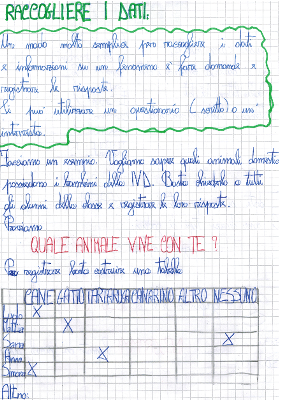 RACCOGLIERE I DATI:
Un modo molto semplice per raccogliere i dati
e informazioni su un fenomeno è fare domande e
registrare le risposte.
Si può utilizzare un questionario (scritto) o un'
intervista.
Facciamo un esempio. Vogliamo sapere quali animali domestici
possiedono i bambini della IVD. Basta chiederlo a tutti
gli alunni della classe e registrare le loro risposte.
Proviamo
QUALE ANIMALE VIVE CON TE?
Per registrare basta costruire una tabella
CANE GATTO TARTARUGA CANARINO ALTRO NESSUNO
X
X
Sara X
X
Simone X